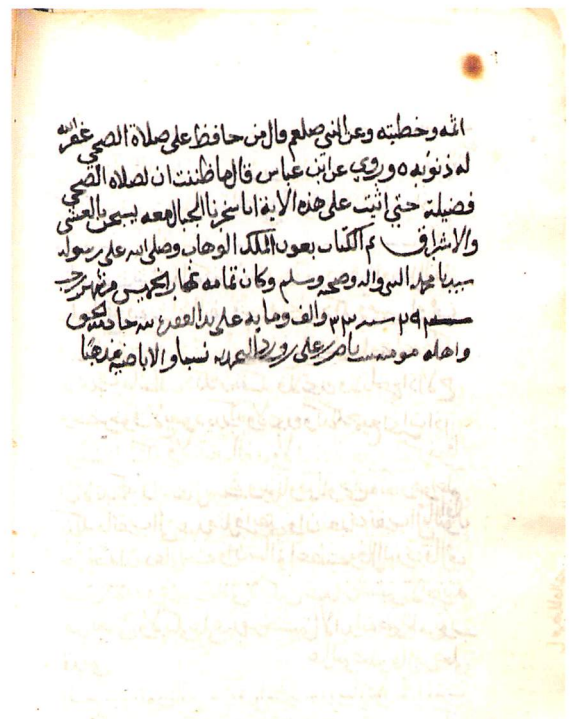 الله وخطيته وعن النبي صلعم قال من حافظ على صلاة الضحى غفر الله
له ذنوبه ٥ وروي عن ابن عباس قال ما ظننت ان لصلاة الضحى
فضيلة حتى اتيت على هذه الاية انا سخرنا الجبال معه يسبحن بالعشي
والاشراق تم الكتاب بعون الملك الوهاب وصلى الله على رسوله
سيدنا محمد النبي واله وصحبه وسلم وكان تمامه نهار الخميس من شهر رجب
٢٩ سنة ٣٣ والف وماية على يد الفقير لله خادم الحق
واهله ناصر بن علي نسبا والاباضية مذهبا